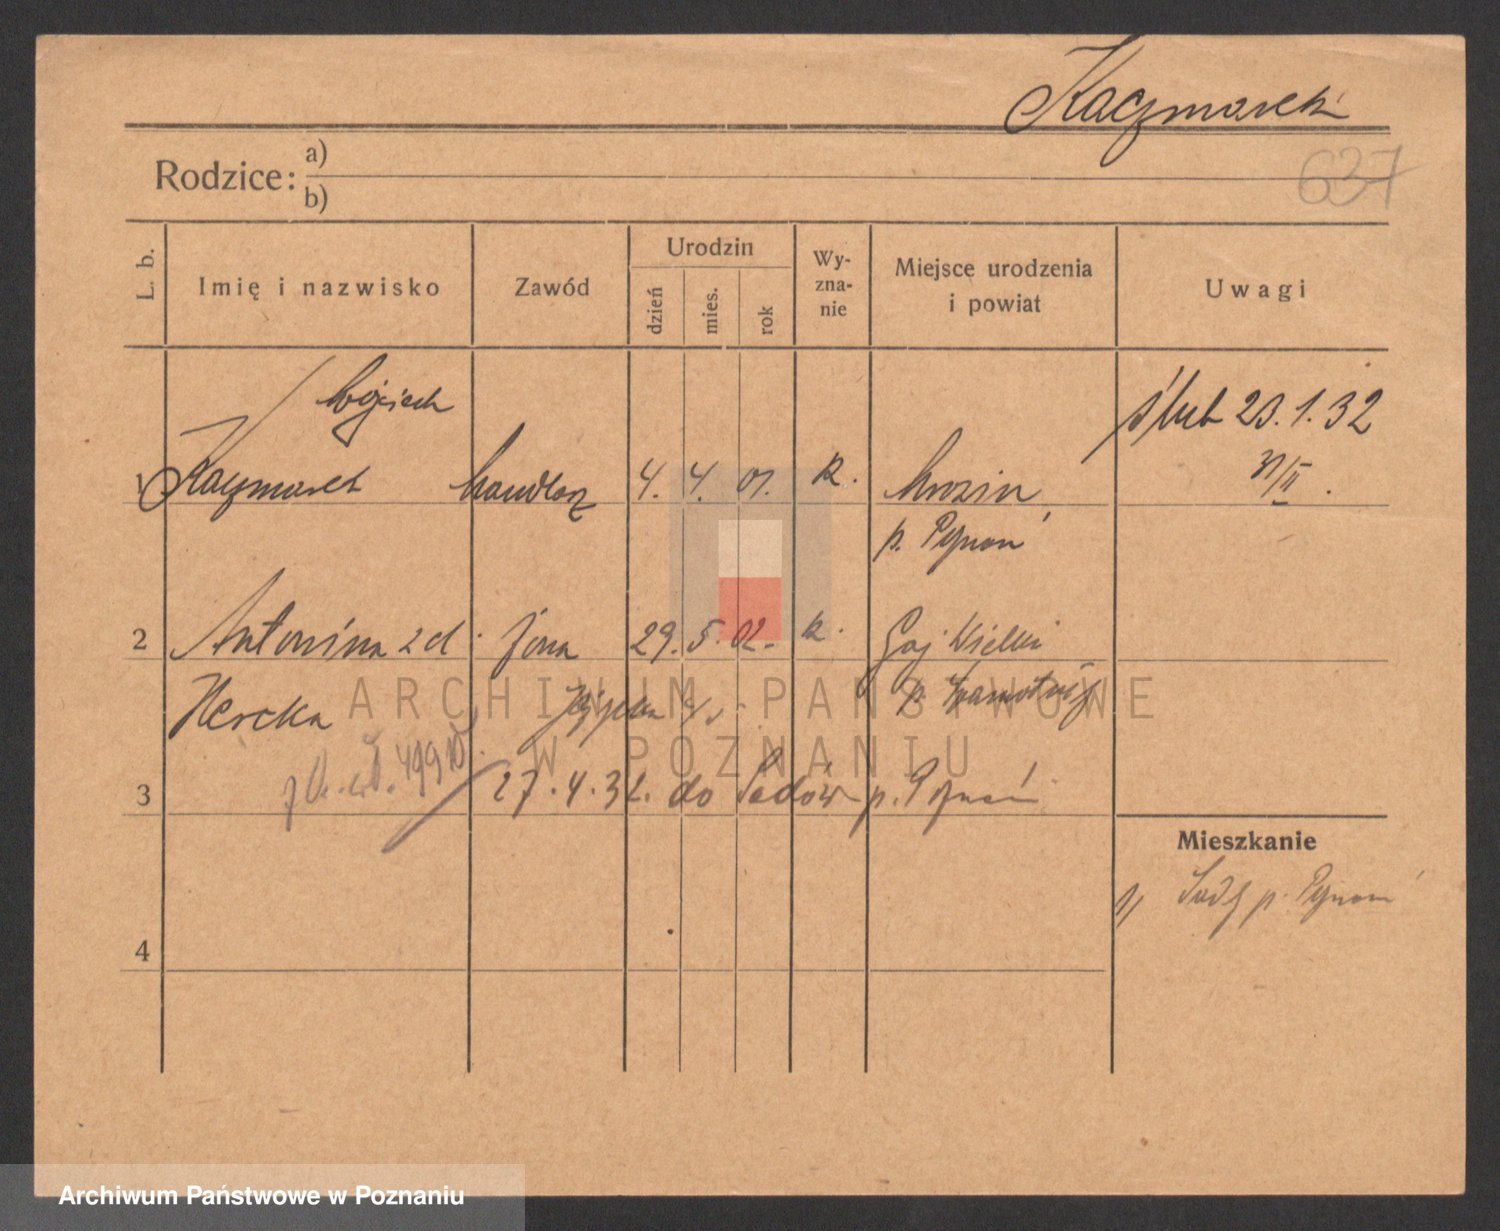 Kaczmarek
637
Rodzice: a)
b)
L. b.
Imię i nazwisko
Zawód
Urodzin
dzień
mies.
rok
Wy-
zna-
nie
Miejsce urodzenia
i powiat
Uwagi
Wojciech
ślub 23.1.32
1 Kaczmarek handlarz 4. 4. 01. k.
p. Poznań
2 Antonina z d. żona 29. 5. 02. k. Gaj Wielki
Hercka p. Szamotuły
3 27.4.32. do Sadów p. Poznań
Mieszkanie
1) Sady p. Poznań
4
ARCHIWUM PAŃSTWOWE
W POZNANIU
Archiwum Państwowe w Poznaniu